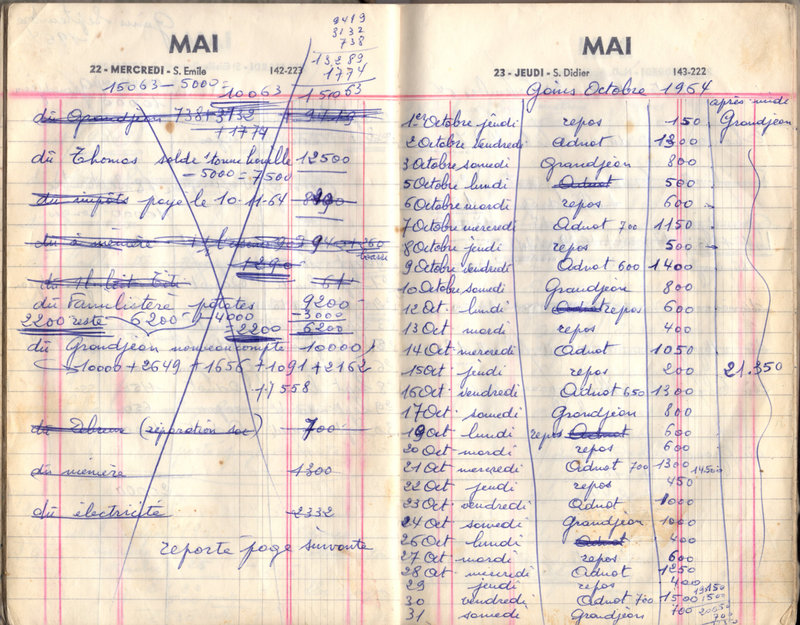 9419
3132
738
13289
1774
15063
MAI
22 - MERCREDI - S. Emile 142-223
15063 - 5000 =
10063
du Grandjean 738 + 3132 9419
+ 1774
dû Thomas solde 1 tonne houille 12500
- 5000 = 7500
du impôts payé le 10-11-64
+ 260
1290
du familistère patates 9200
2200 reste 6200 - 4000 - 3000
= 2200 6200
du Grandjean nouveau compte 10000
10000 + 2649 + 1656 + 1091 + 2162
17558
du Lebrun (réparation sac) 700
du 1300
dû électricité 2332
reporté page suivante
MAI
23 - JEUDI - S. Didier 143-222
Gains Octobre 1964
après midi
1er Octobre jeudi repos 150 Grandjean
2 Octobre vendredi Adnot 1300
3 Octobre samedi Grandjean 800
5 Octobre lundi Adnot 500
6 Octobre mardi repos 600
7 Octobre mercredi Adnot 700 1150
8 Octobre jeudi repos 500
9 Octobre vendredi Adnot 600 1400
10 Octobre samedi Grandjean 800
12 Oct. lundi Adnot repos 600
13 Oct mardi repos 400
14 Oct mercredi Adnot 1050
15 Oct jeudi repos 200 21.350
16 Oct vendredi Adnot 650 1300
17 Oct samedi Grandjean 800
19 Oct lundi repos Adnot 600
20 Oct mardi repos 600
21 Oct mercredi Adnot 700 1300
22 Oct jeudi repos 450
23 Oct vendredi Adnot 1000
24 Oct samedi Grandjean 1000
26 Oct lundi Adnot 400
27 Oct mardi repos 600
28 Oct mercredi Adnot 1250
29 jeudi repos 400
30 vendredi Adnot 700 1500
31 samedi Grandjean 700